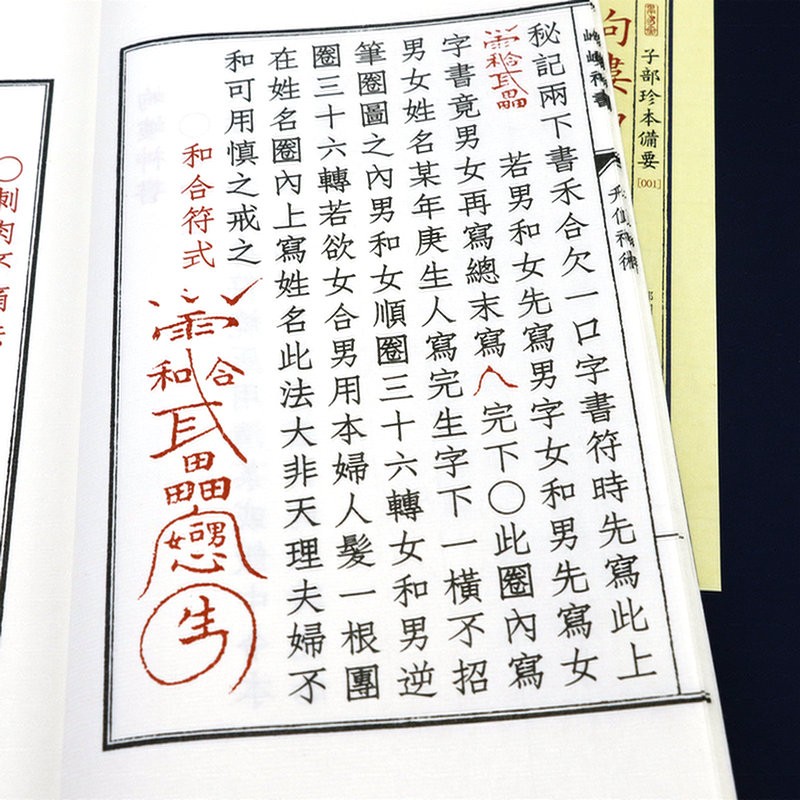 子部珍本備要
[001]
秘記兩下書禾合欠一口字書符時先寫此上
和合
若男和女先寫男字女和男先寫女
字書竟男女再寫總末寫
完下〇此圈內寫
男女姓名某年庚生人寫完生字下一橫不招
筆圈圖之內男和女順圈三十六轉女和男逆
圈三十六轉若欲女合男用本婦人髮一根團
在姓名圈內上寫姓名此法大非天理夫婦不
和可用慎之戒之
和合符式
和合
田田田田
女男
生
〇刺肉不